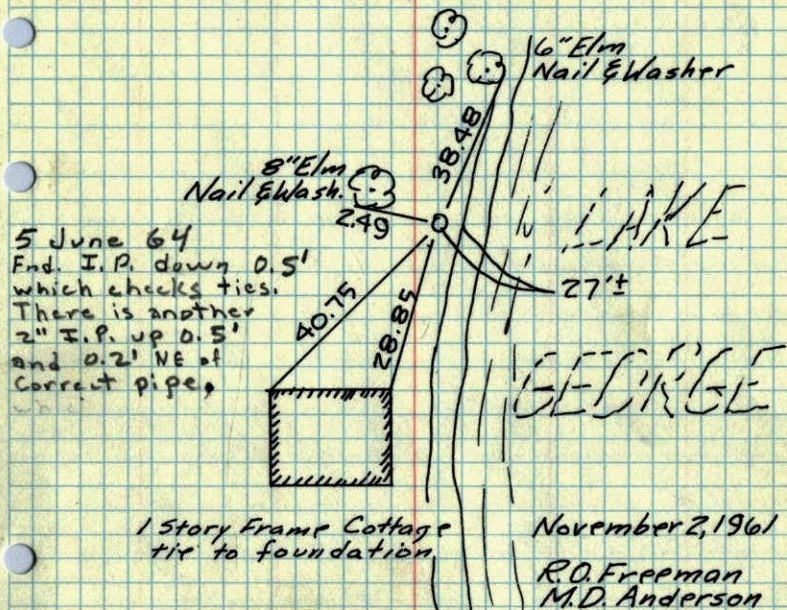 6" Elm
Nail & Washer
38.48
8" Elm
Nail & Wash.
2.49
LAKE
5 June 64
Fnd. I.P. down 0.5'
which checks ties.
There is another
2" I.P. up 0.5'
and 0.2' NE of
Correct pipe.
27'±
40.75
28.85
GEORGE
1 Story Frame Cottage
tie to foundation
November 2, 1961
R.O. Freeman
M.D. Anderson